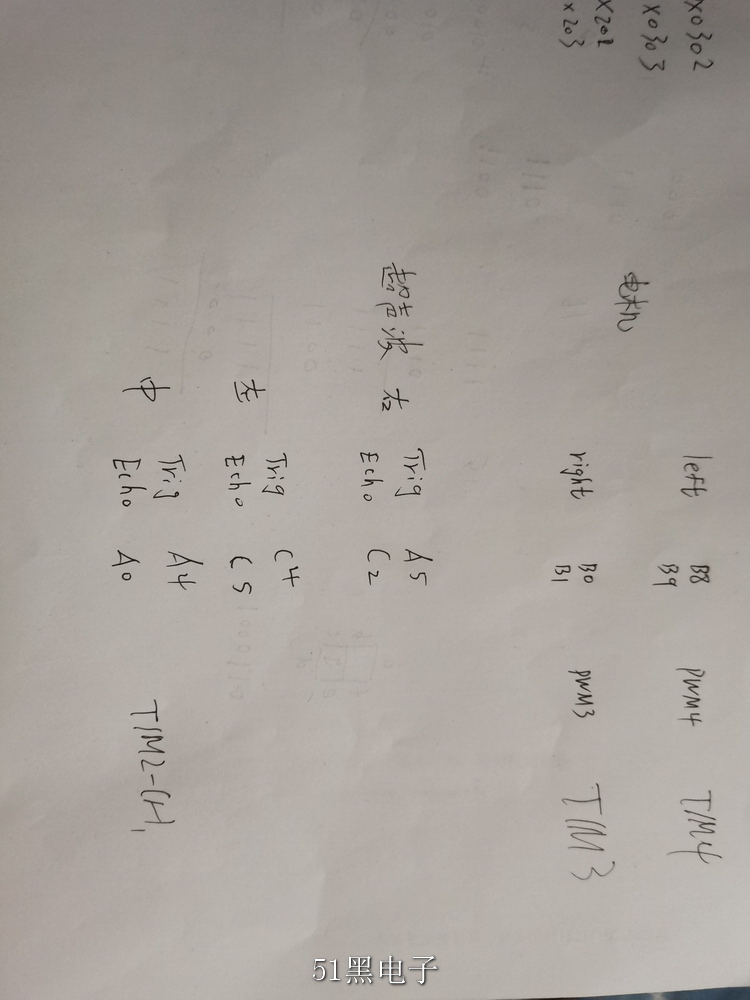 x0302
x0303
x202
x203
电机 left B8 PWM4 TIM4
B9
right B0 PWM3 TIM3
B1
超声波 右 Trig A5
Echo C2
左 Trig C4
Echo C5
中 Trig A4
Echo A0 TIM2-CH1
51黑电子